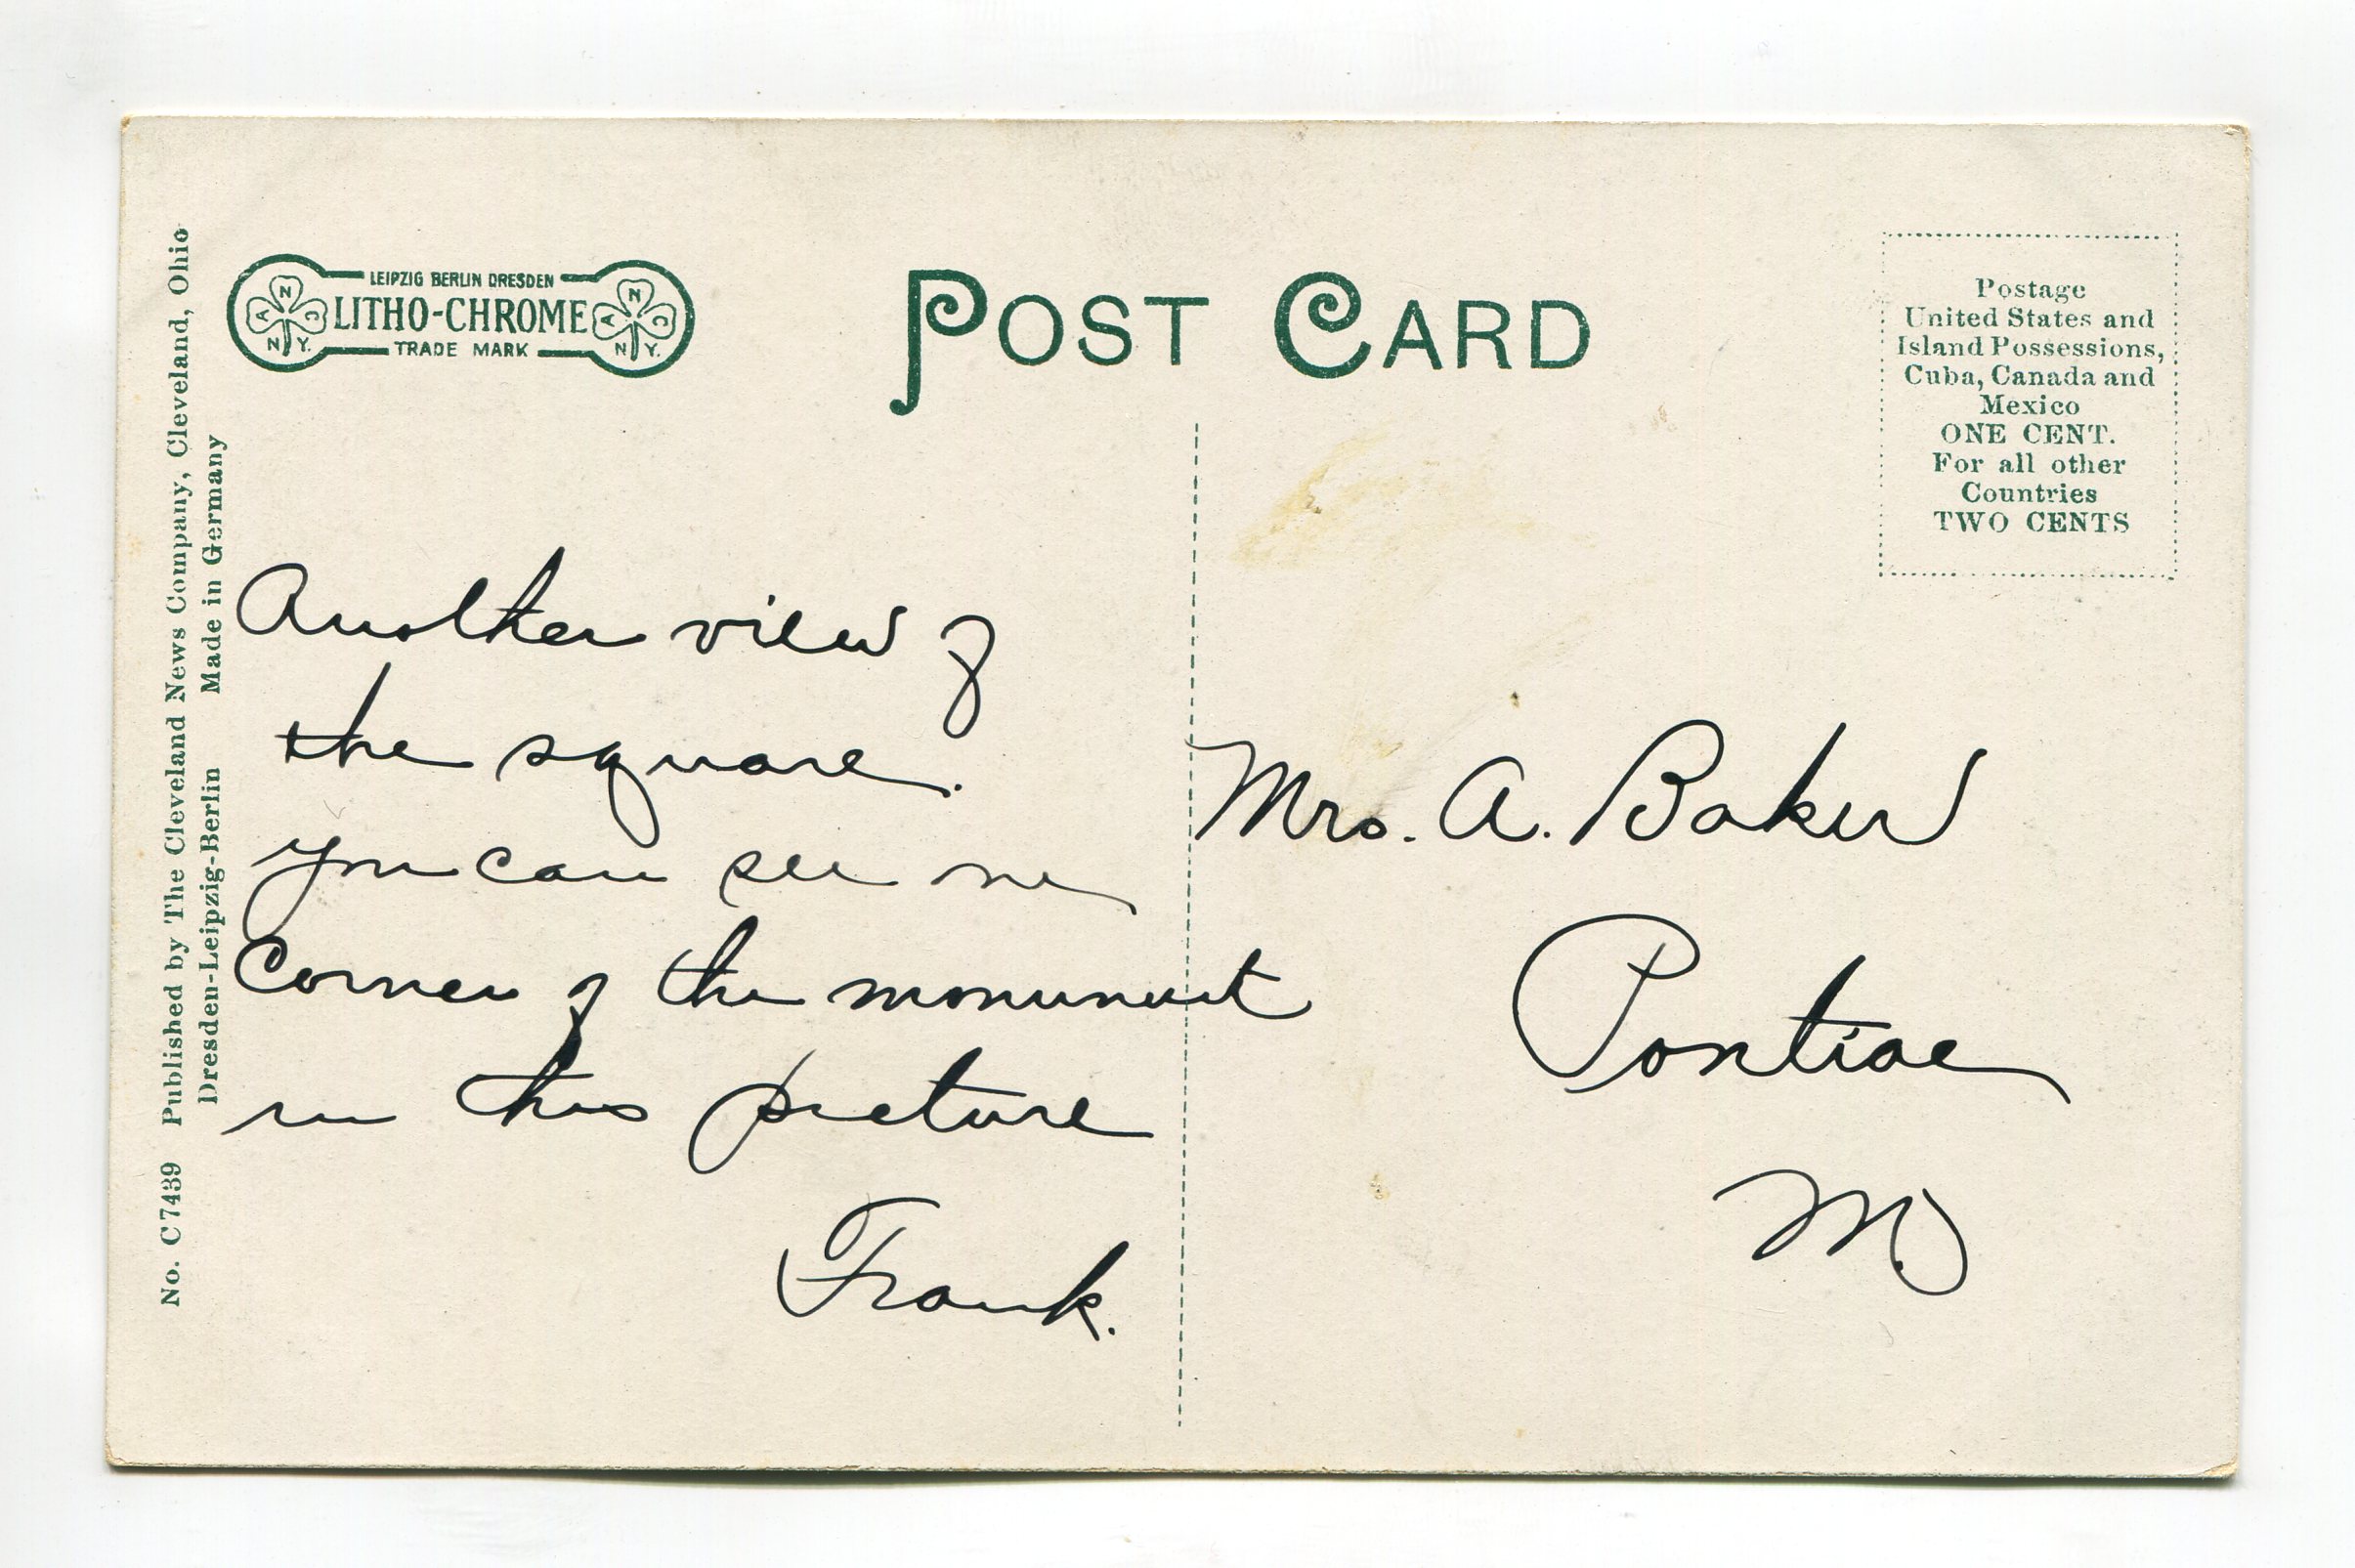 No. C7439 Published by The Cleveland News Company, Cleveland, Ohio
Dresden-Leipzig-Berlin Made in Germany
LEIPZIG BERLIN DRESDEN
LITHO-CHROME
TRADE MARK
A N C N Y.
A N C N Y.
POST CARD
Postage
United States and
Island Possessions,
Cuba, Canada and
Mexico
ONE CENT.
For all other
Countries
TWO CENTS
Another view of
the square.
you can see one
corner of the monument
in this picture
Frank.
Mrs. A. Baker
Pontiac